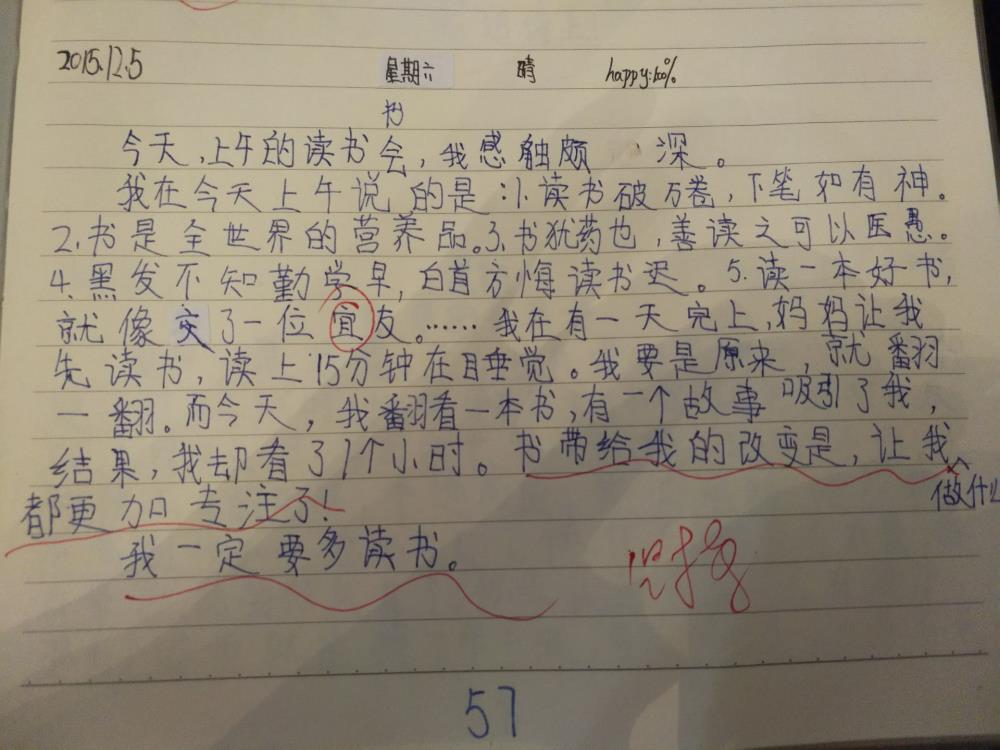 2015.12.5 星期六 晴 happy:100%
书
今天,上午的读书会,我感触颇深。
我在今天上午说的是:1.读书破万卷,下笔如有神。
2.书是全世界的营养品。3.书犹药也,善读之可以医愚。
4.黑发不知勤学早,白首方悔读书迟。5.读一本好书,
就像交了一位宜友。……我在有一天完上,妈妈让我
先读书,读上15分钟在睡觉。我要是原来,就翻
一翻。而今天,我翻看一本书,有一个故事吸引了我,
结果,我却看了1个小时。书带给我的改变是,让我
做什么
都更加专注了!
我一定要多读书。
57